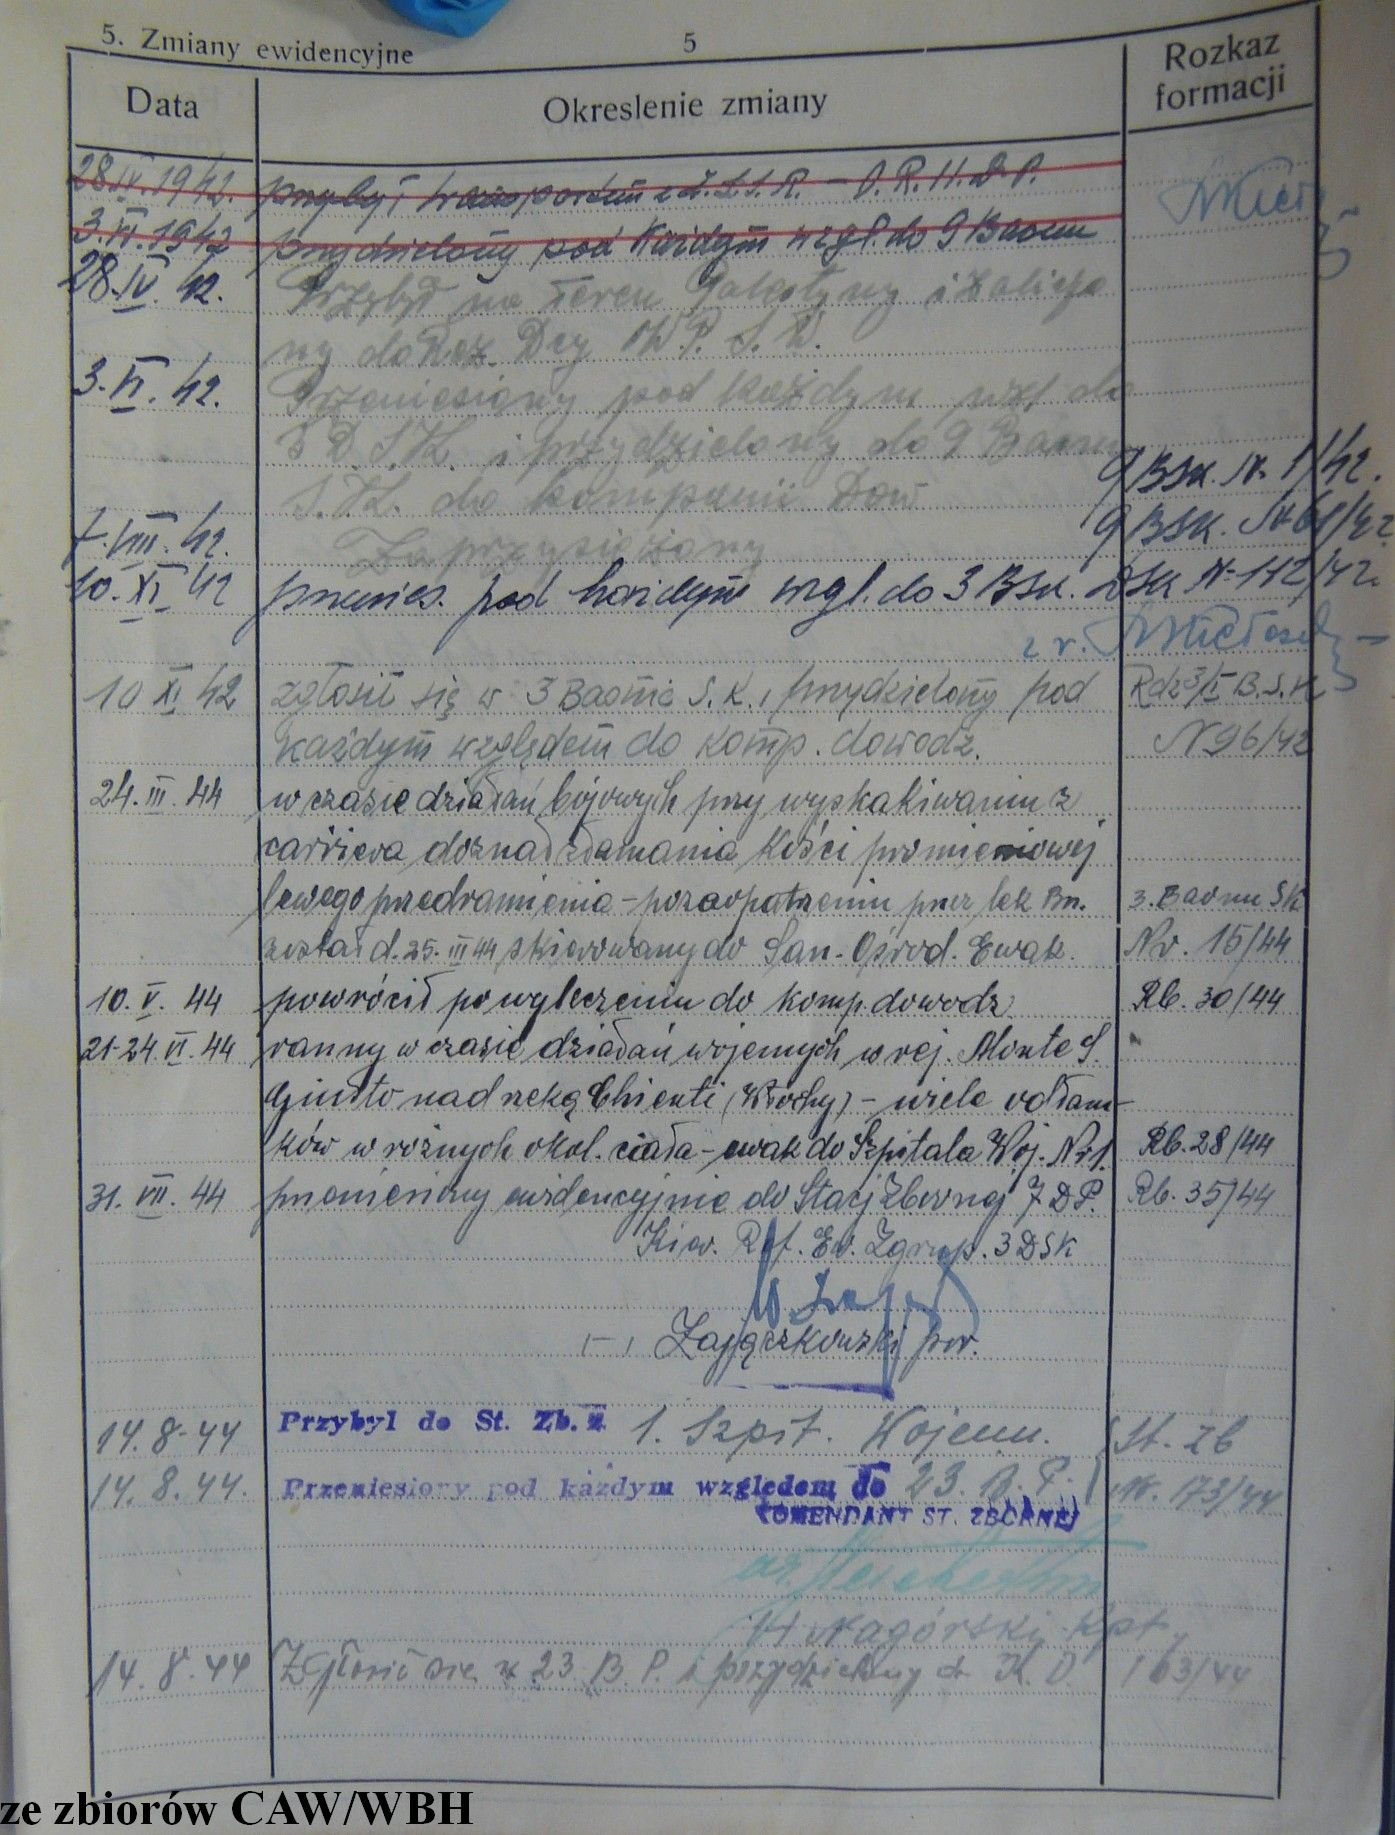 5. Zmiany ewidencyjne 5
Data Okreslenie zmiany Rozkaz formacji
28.IV.1942. przybył transportem z Z.S.S.R. – D.R.H.D.P.
3.VI.1942 przydzielony pod każdym wzgl. do 9 Baonu
28.IV. 42. Przybył na teren Palestyny i zalicza
ny do Roz. Dcy W.P. Ś.W.
3. VI. 42. Przeniesiony pod każdym wzgl do
3 D.S.K. i przydzielony do 9 Baonu
S.K. do kompanii Dow 9 BSK. Nr. 1/42.
7. VIII. 42. Zaprzysiężony 9 BSK. Nr 61/42
10. XI 42 przenies. pod każdym wzgl. do 3 BSK. DSK Nr 142/42
z r.
10 XI 42 zgłosił się w 3 Baonie S.K., przydzielony pod Rdz 3/I B.S.K
każdym względem do komp. dowodz. N 96/42
24. III. 44 w czasie działań bojowych przy wyskakiwaniu z
carriera doznał złamania kości promieniowej
lewego przedramienia – po zaopatrzeniu przez lek Bn. 3. Baonu SK
został d. 25. III 44 skierowany do San. Ośrod. Ewak. Nr. 15/44
10. V. 44 powrócił po wyleczeniu do komp. dowodz. Rb. 30/44
21-24. VI. 44 ranny w czasie działań wojennych w rej. Monte S.
Giusto nad rzeką Chienti (Włochy) – wiele odłam-
ków w różnych okol. ciała – ewak do Szpitala Woj. Nr 1. Rb. 28/44
31. VII. 44 przeniesiony ewidencyjnie do Stacji Zbornej 7 D.P. Rb. 35/44
Kier. Ref. Ew. Zgrup. 3 DSK
(–) Zajączkowski por.
14. 8. 44 Przybyl do St. Zb. z 1. Szpit. Wojenn. St. Zb
14. 8. 44. Przeniesiony pod każdym względem do 23. B. P. Nr. 173/44
KOMENDANT ST. ZBORNEJ
Nagórski kpt.
14. 8. 44 Zgłosił się w 23. B. P. i przydzielony do K. D. 163/44
ze zbiorów CAW/WBH